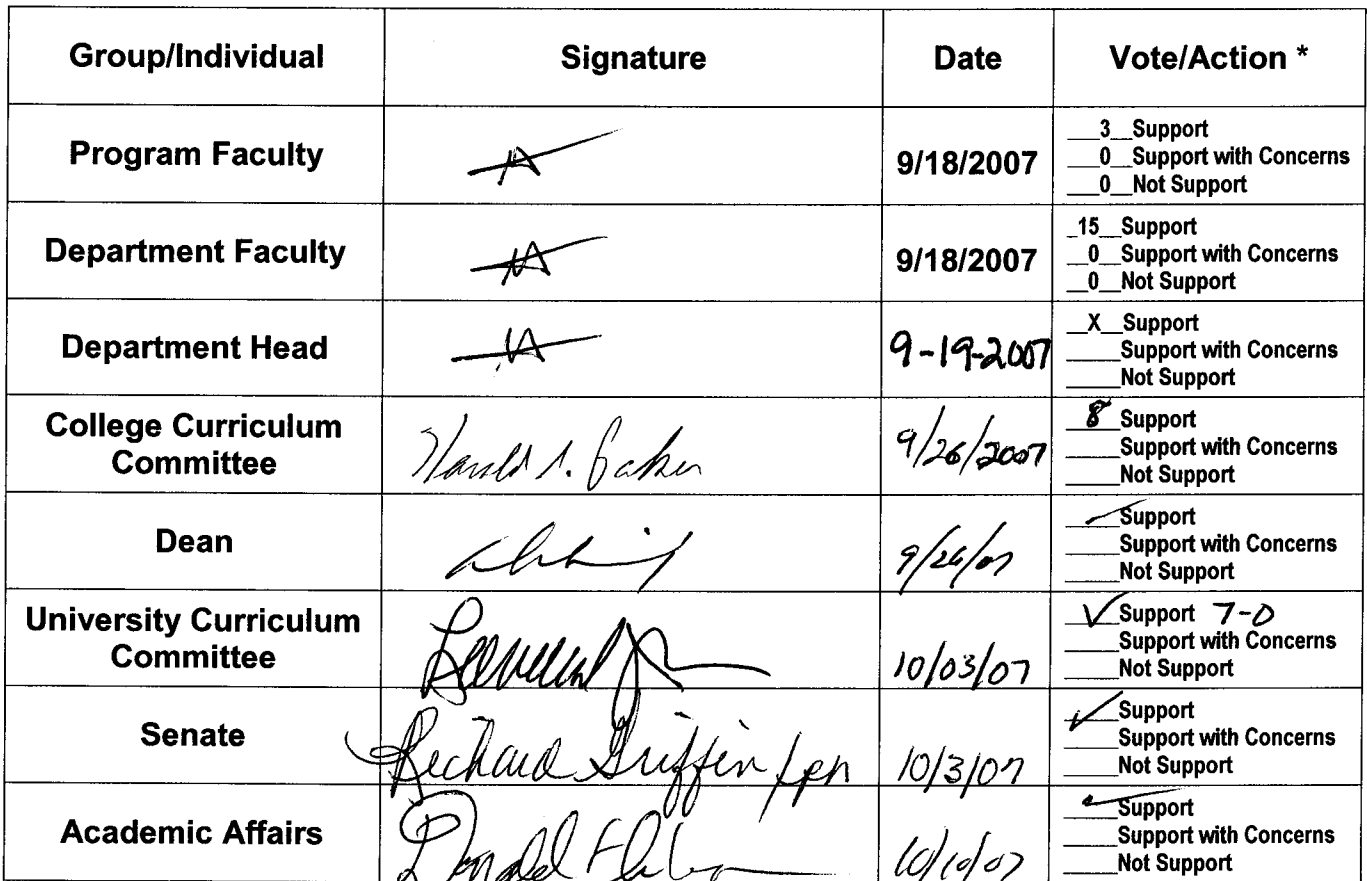 Group/Individual Signature Date Vote/Action *
Program Faculty 9/18/2007
__3__Support
__0__Support with Concerns
__0__Not Support
Department Faculty 9/18/2007
_15__Support
__0__Support with Concerns
__0__Not Support
Department Head 9-19-2007
__X__Support
____Support with Concerns
____Not Support
College Curriculum
Committee
9/26/2007
8 Support
____Support with Concerns
____Not Support
Dean
____Support
____Support with Concerns
____Not Support
University Curriculum
Committee
10/03/07
✓ Support 7-0
____Support with Concerns
____Not Support
Senate Richard Griffin 10/3/07
✓ Support
____Support with Concerns
____Not Support
Academic Affairs Donald 10/10/07
____Support
____Support with Concerns
____Not Support